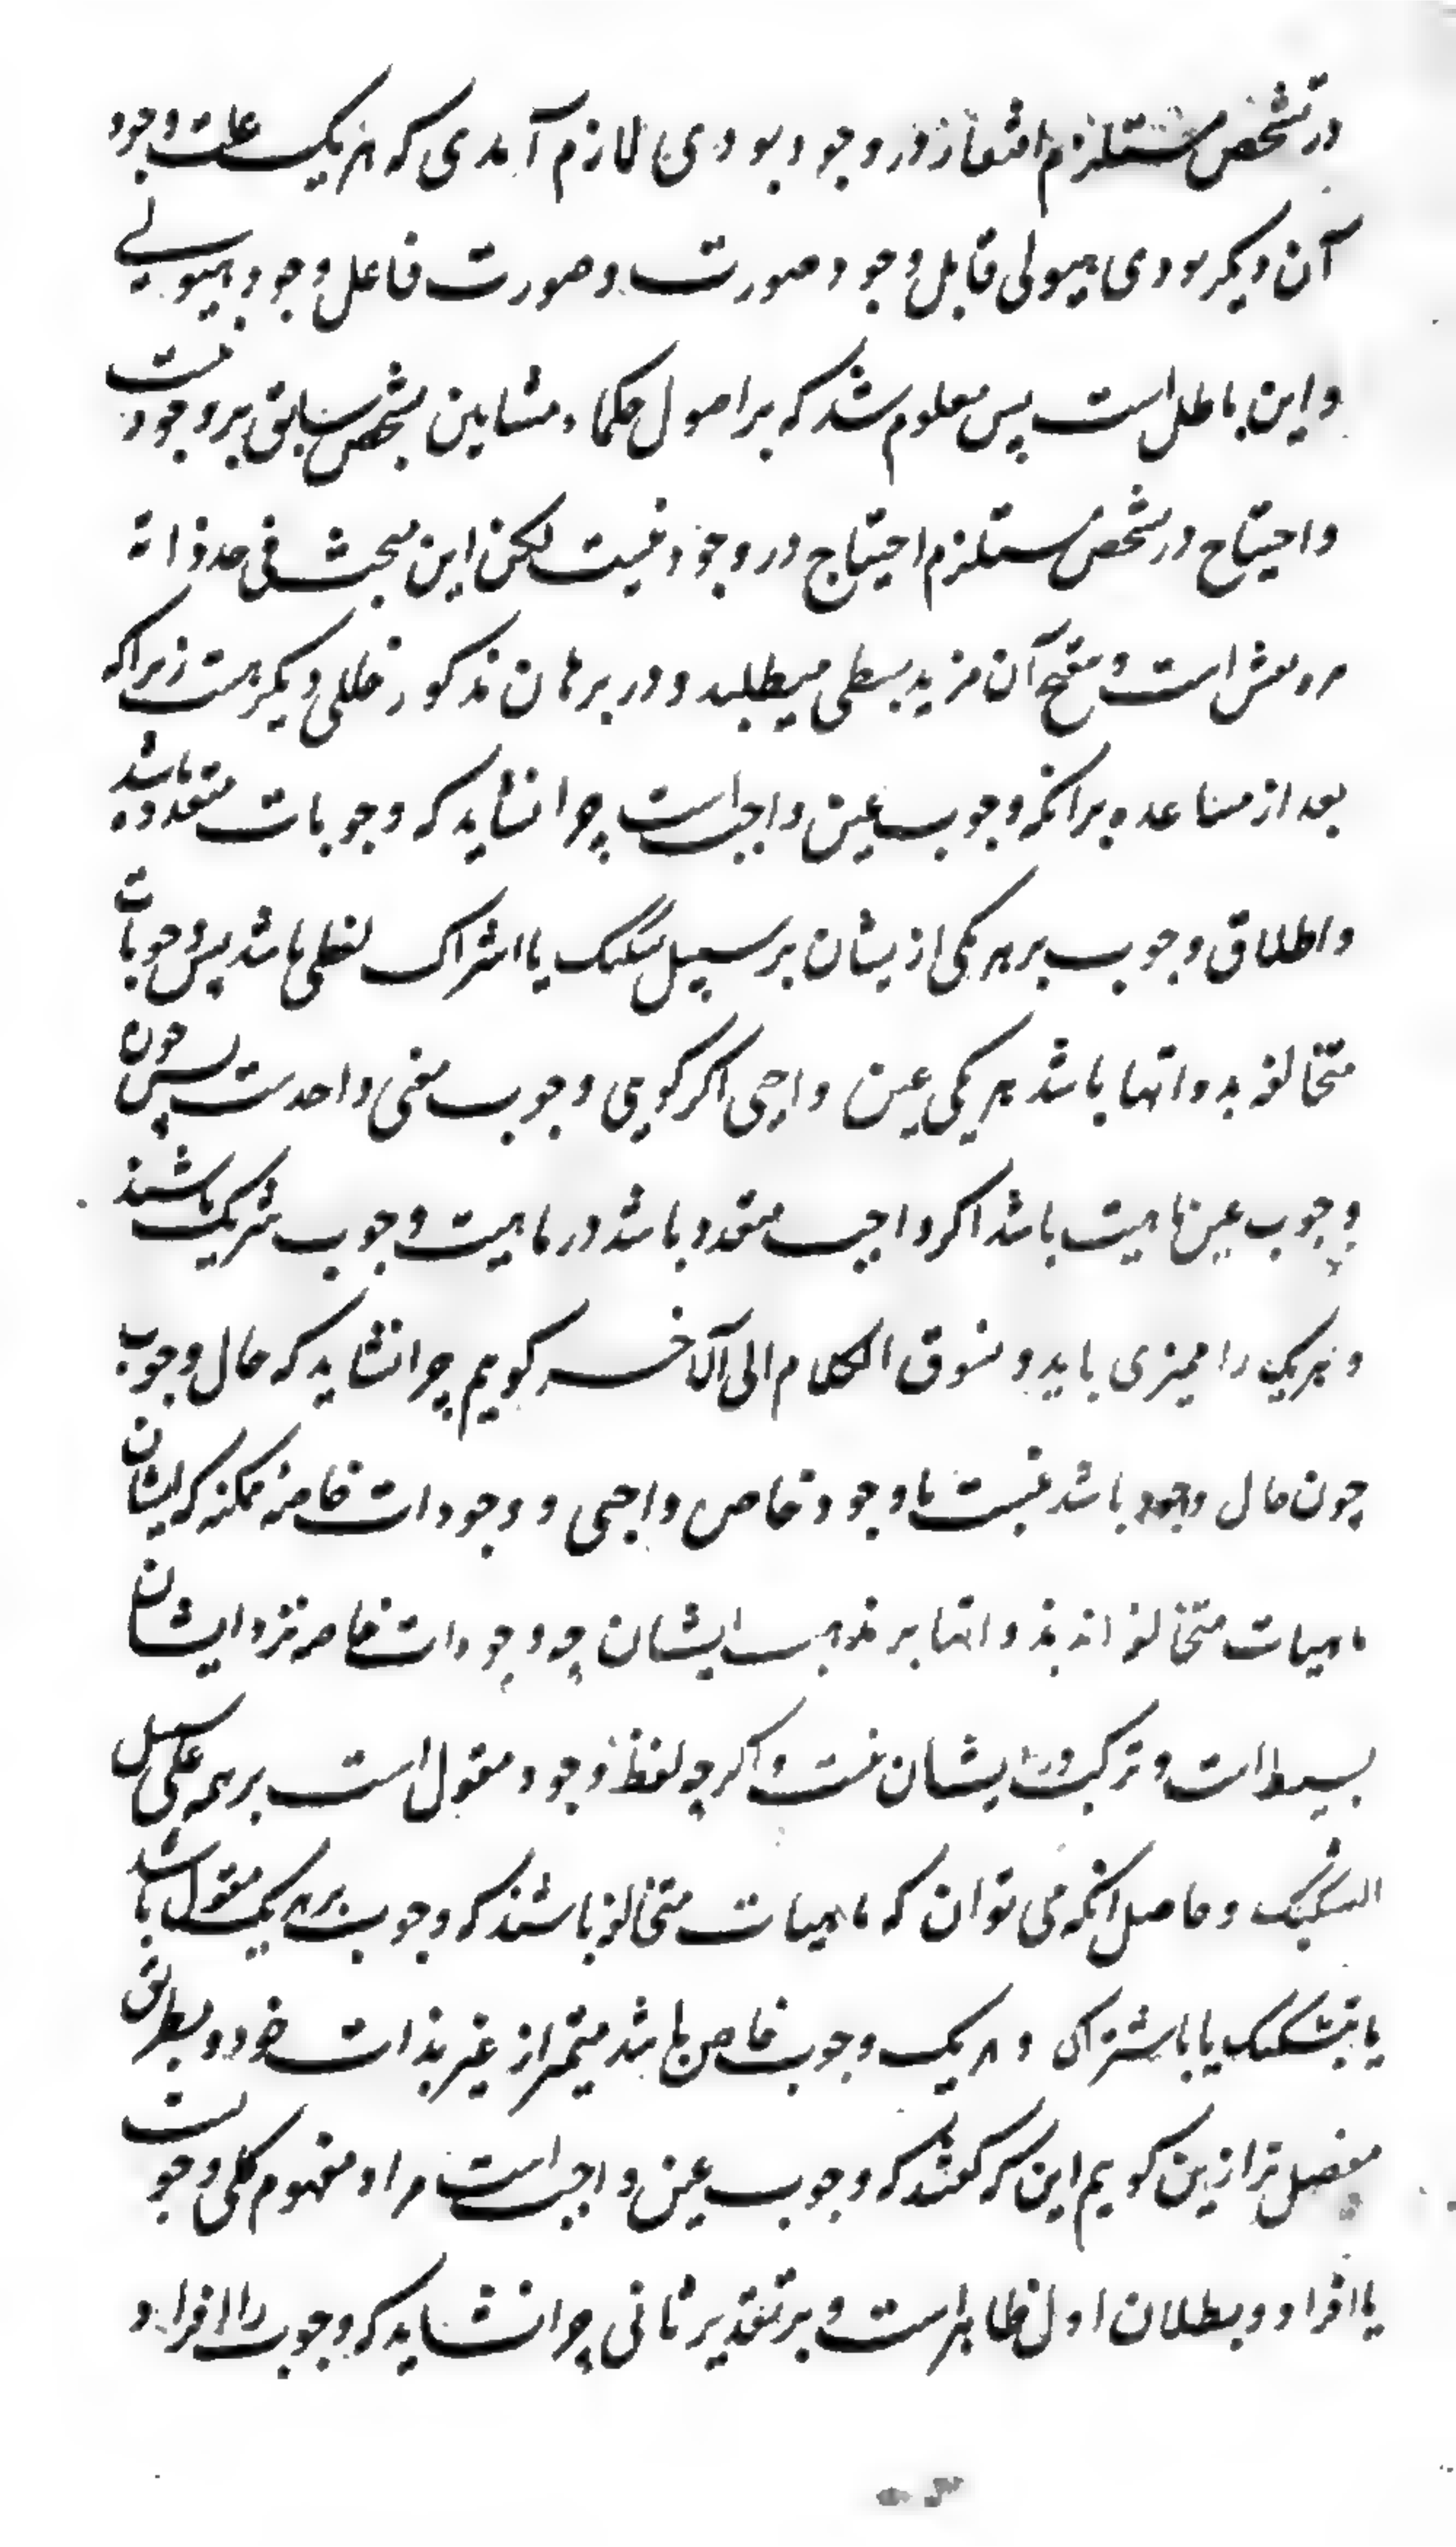 در تشخص مستلزم افتقار در وجود بودی لازم آمدی که هر یک علت وجود
آن دیگر بودی هیولی قابل وجود صورت و صورت فاعل وجود هیولی
و این باطل است پس معلوم شد که بر اصول حکماء مشایین تشخص سابق بر وجود نیست
و احتیاج در تشخص مستلزم احتیاج در وجود نیست لکن این مبحث فی حد ذاته
است و تنقیح آن مزید بسطی میطلبد و در برهان مذکور خللی دیگر هست زیرا که
بعد از مساعده برانکه وجوب عین واجب است چرا نشاید که وجوبات متعدده باشد
و اطلاق وجوب بر هر یکی ازیشان بر سبیل تشکیک یا اشتراک لفظی باشد پس وجوبات
متخالفه بذواتها باشد هر یکی عین واجبی اکر کویی وجوب معنی واحدست پس چون
وجوب عین ماهیت باشد اکر واجب متعدد باشد در ماهیت وجوب شریک باشند
و هر یک را ممیزی باید و نسوق الکلام الی آلاخر کویم چرا نشاید که حال وجوب
چون حال وجود باشد نسبت با وجود خاص واجبی و وجودات خاصه ممکنه که ایشان
ماهیات متخالفه اند بذواتها بر مذهب ایشان چه وجودات خاصه نزد ایشان
بسیط است و ترکیب در ایشان نیست و اکر چه لفظ وجود مقول است بر همه علی سبیل
التشکیک و حاصل انکه می توان که ماهیات متخالفه باشند که وجوب بر هر یک مقول باشد
یا بتشکیک یا باشتراک و هر یک وجوب خاص باشد متمیز از غیر بذات خود و بطریق
مفصل تر ازین کویم این که کفتند که وجوب عین واجب است مراد مفهوم کلی وجوبست
یا افراد و بطلان اول ظاهر است و بر تقدیر ثانی چرا نشاید که وجوب را افراد